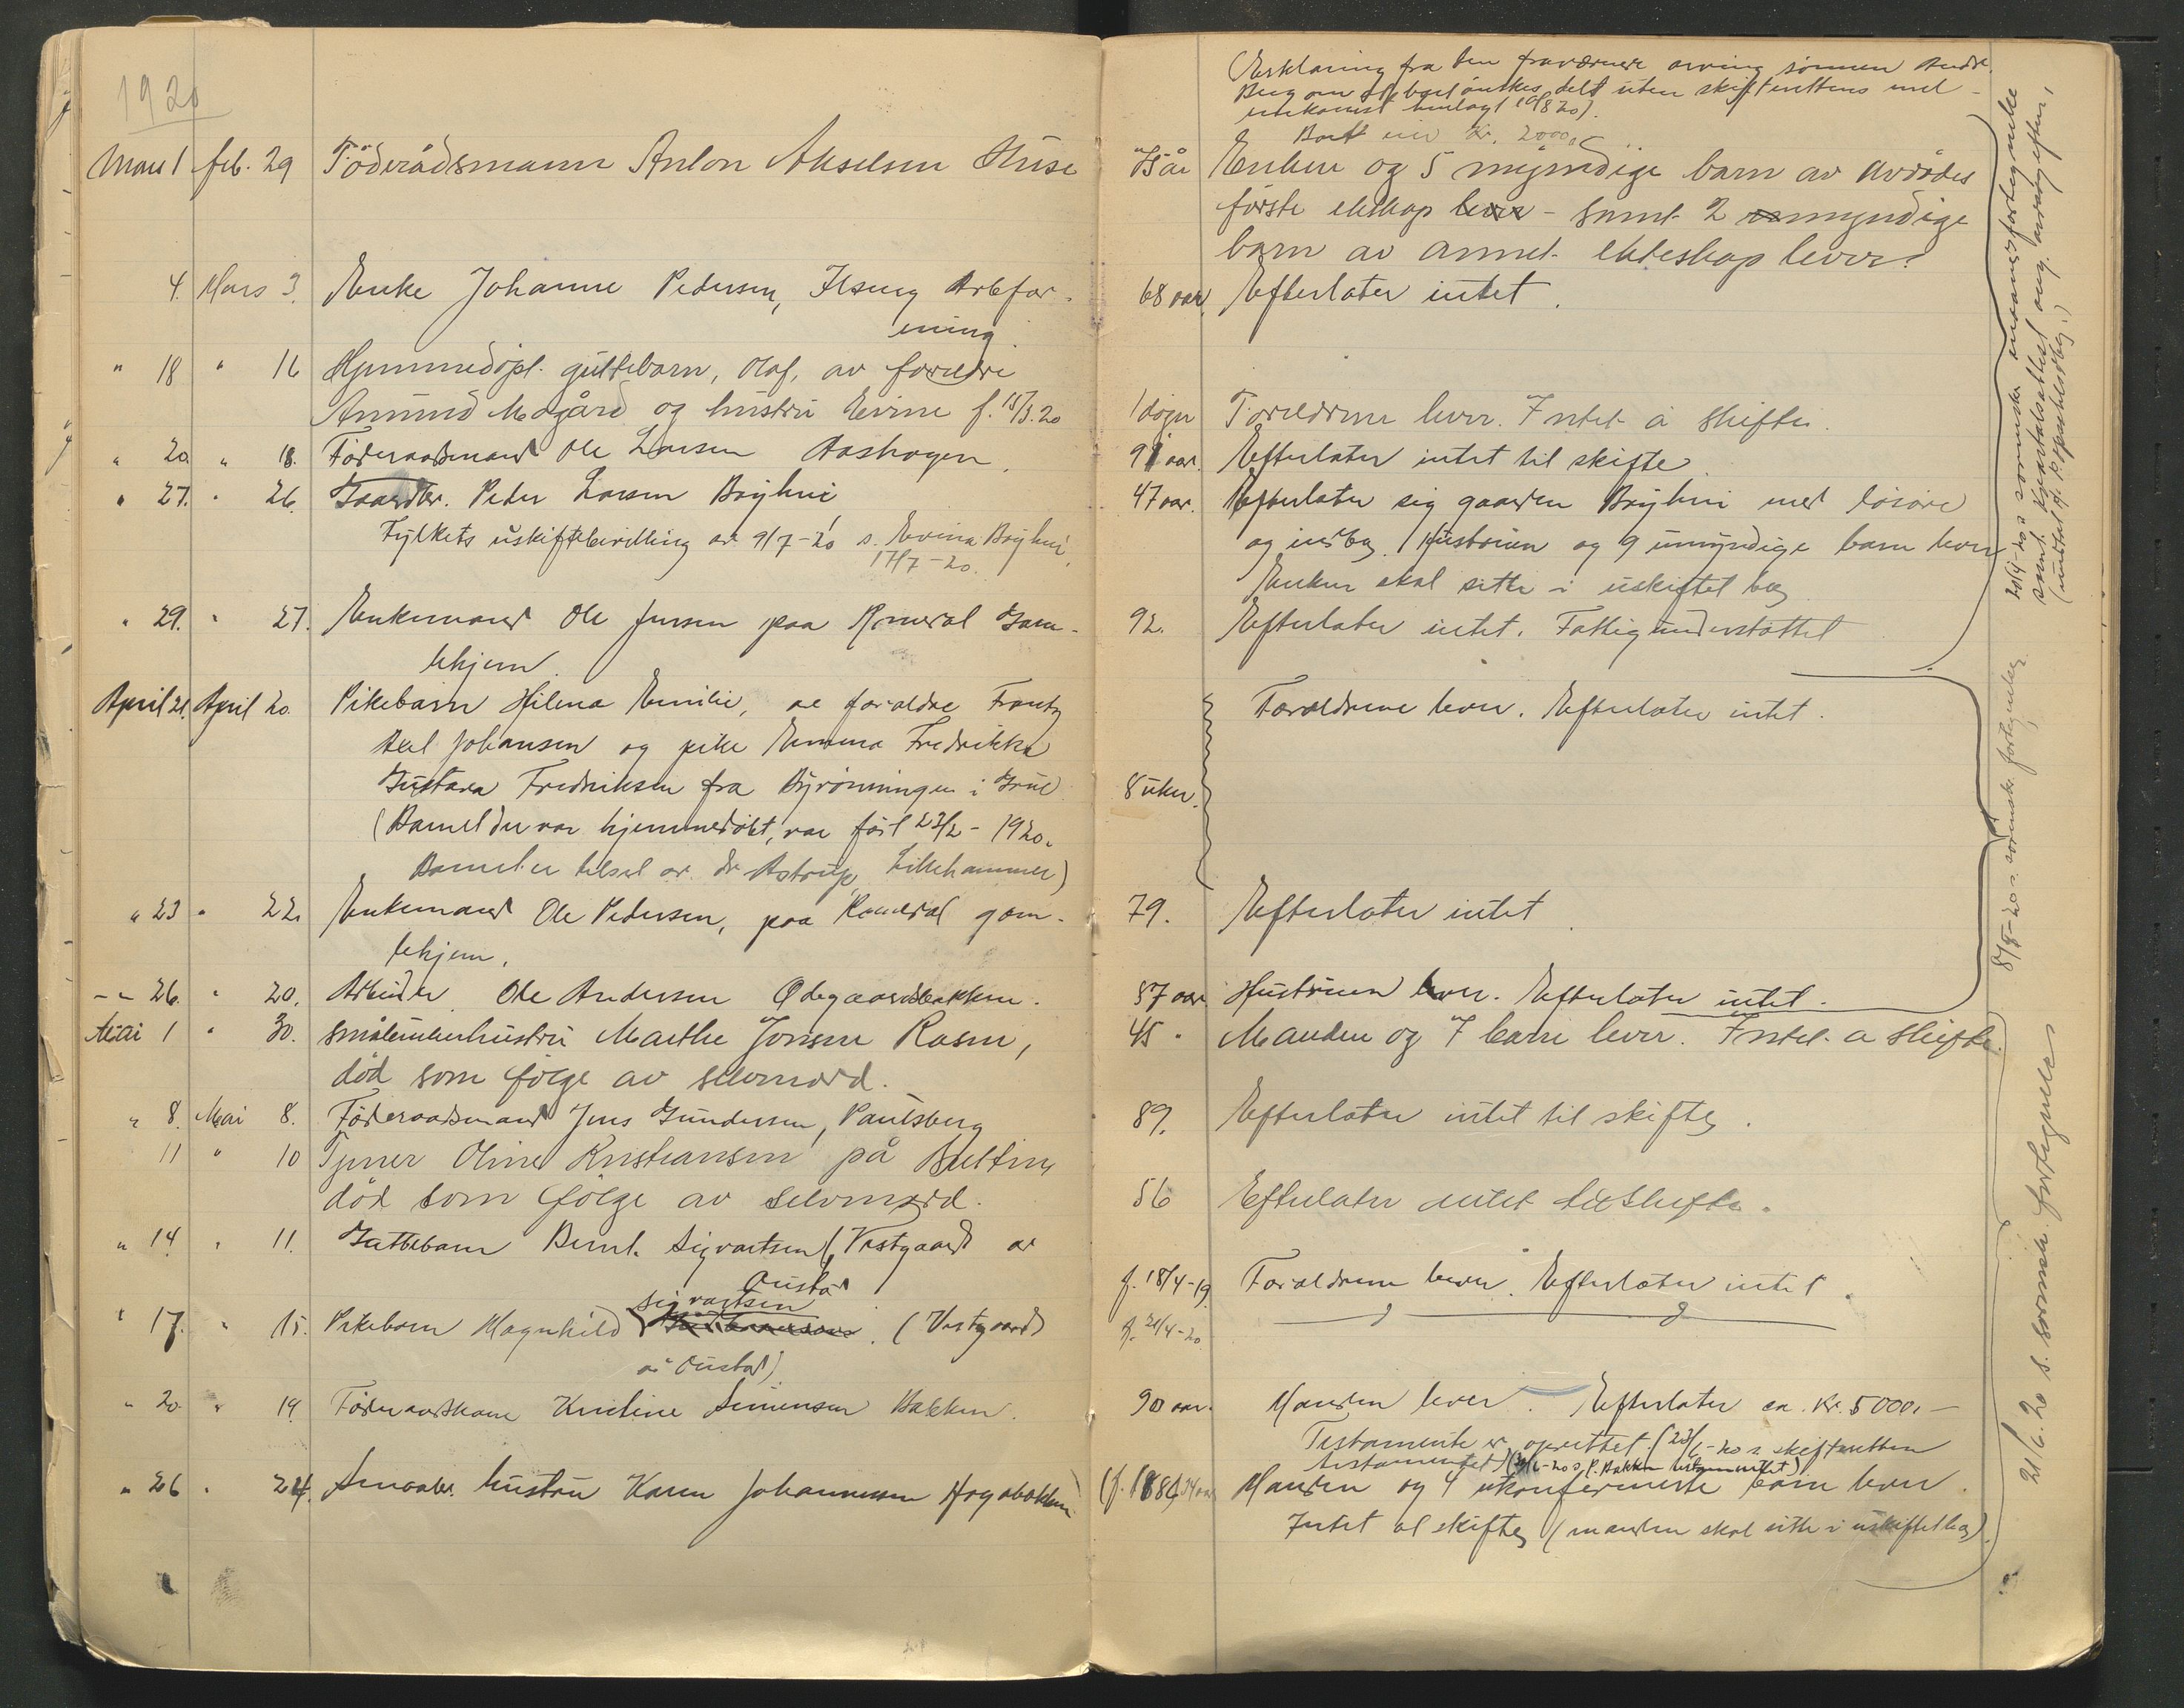 1920
Mars 1 feb. 29 Föderådsmann Anton Akselsen Huse
4. Mars 3. Enke Johanne Pedersen, Ilseng Arbfor-
ening.
" 18 " 16 Hjemmedöpt. guttebarn, Olaf, av foreldre
Amund Mogård og hustru Evine f. 15/3.20
" 20 " 18. Føderaadsmand Ole Larsen Aashagen.
" 27. " 26. Gaardbr. Peder Larsen Bryhni
Fylkets uskiftebevilling av 9/7-20 s. Evina Bryhni,
17/7-20.
" 29. " 27. Enkemand Ole Jensen paa Romedal Gam-
lehjem.
April 21. April 20. Pikebarn Hilma Emilie, av forældre Frantz
Axel Johansen og pike Emma Fredrikke
Gustava Fredriksen fra Byrønningen i Grue
(Barnet der var hjemmedøbt, var født 23/2-1920.
Barnet er tilset av dr. Astrup, Lillehammer)
" 23 " 22. Enkemand Ole Pedersen, paa Romedal gam-
lehjem.
-"- 26. " 20. Arbeider Ole Andersen Ødegaardsbakken.
Mai 1 " 30. Småbrukerhustru Marthe Jonsen Rasen,
död som fölge av selvmord.
" 8. Mai 8. Føderaadsmand Jens Gundersen, Paulsberg
11 " 10 Tjener Oline Kristiansen på
död som fölge av selvmord.
" 14 " 11. Guttebarn Bernt Sigvartsen (Vestgaard av
Oustad
Sigvartsen
" 17. " 15. Pikebarn Magnhild . (Vestgaard
av Oustad)
" 20 " 19. Føderaadskone Kristine Simensen Bakken.
" 26 " 24. Smaabr. hustru Karen Johannessen Hagabakken
(Erklæring fra den fraværende arving sønnen Andr.
Berg om at boet ønskes delt uten skifterettens mel-
lemkomst innlagt 10/8 20).
Boet eier Kr. 2000,-
år Enken og 5 myndige barn av avdödes
første ekteskap - samt 2 myndige
barn av annet ekteskap lever.
68 aar. Efterlater intet.
1 døgn Foreldrene lever. Intet å skifte.
91 aar. Efterlater intet til skifte.
47 aar. Efterlater sig gaarden Bryhni med løsøre
og indbo. Hustruen og 9 umyndige barn lever
Enken skal sitte i uskiftet bo.
92. Efterlater intet. Fattigunderstøttet
Forældrene lever. Efterlater intet.
8 uker.
79. Efterlater intet.
57 aar. Hustruen lever. Efterlater intet.
45 " Manden og 7 barn lever. Intet å skifte.
89. Efterlater intet til skifte.
56 Efterlater intet til skifte.
f. 18/4-19. Forældrene lever. Efterlater intet.
f. 21/4-20.
90 aar. Manden lever. Efterlater ca. Kr. 5000,-
Testamente er oprettet. (23/6-20 s. skifteretten
testamentet) s. P. Bakken testamentet)
(f. 1886 34 aar Manden og 4 ukonfirmerte barn lever.
Intet at skifte (manden skal sitte i uskiftet bo).
20/4-20 s. sorenskr. mannsfortegnelse
samt kvartalsattest ang. arveavgiften,
8/5-20 s. sorenskr. fortegnelse
21/6.20 s. sorenskr. fortegnelse